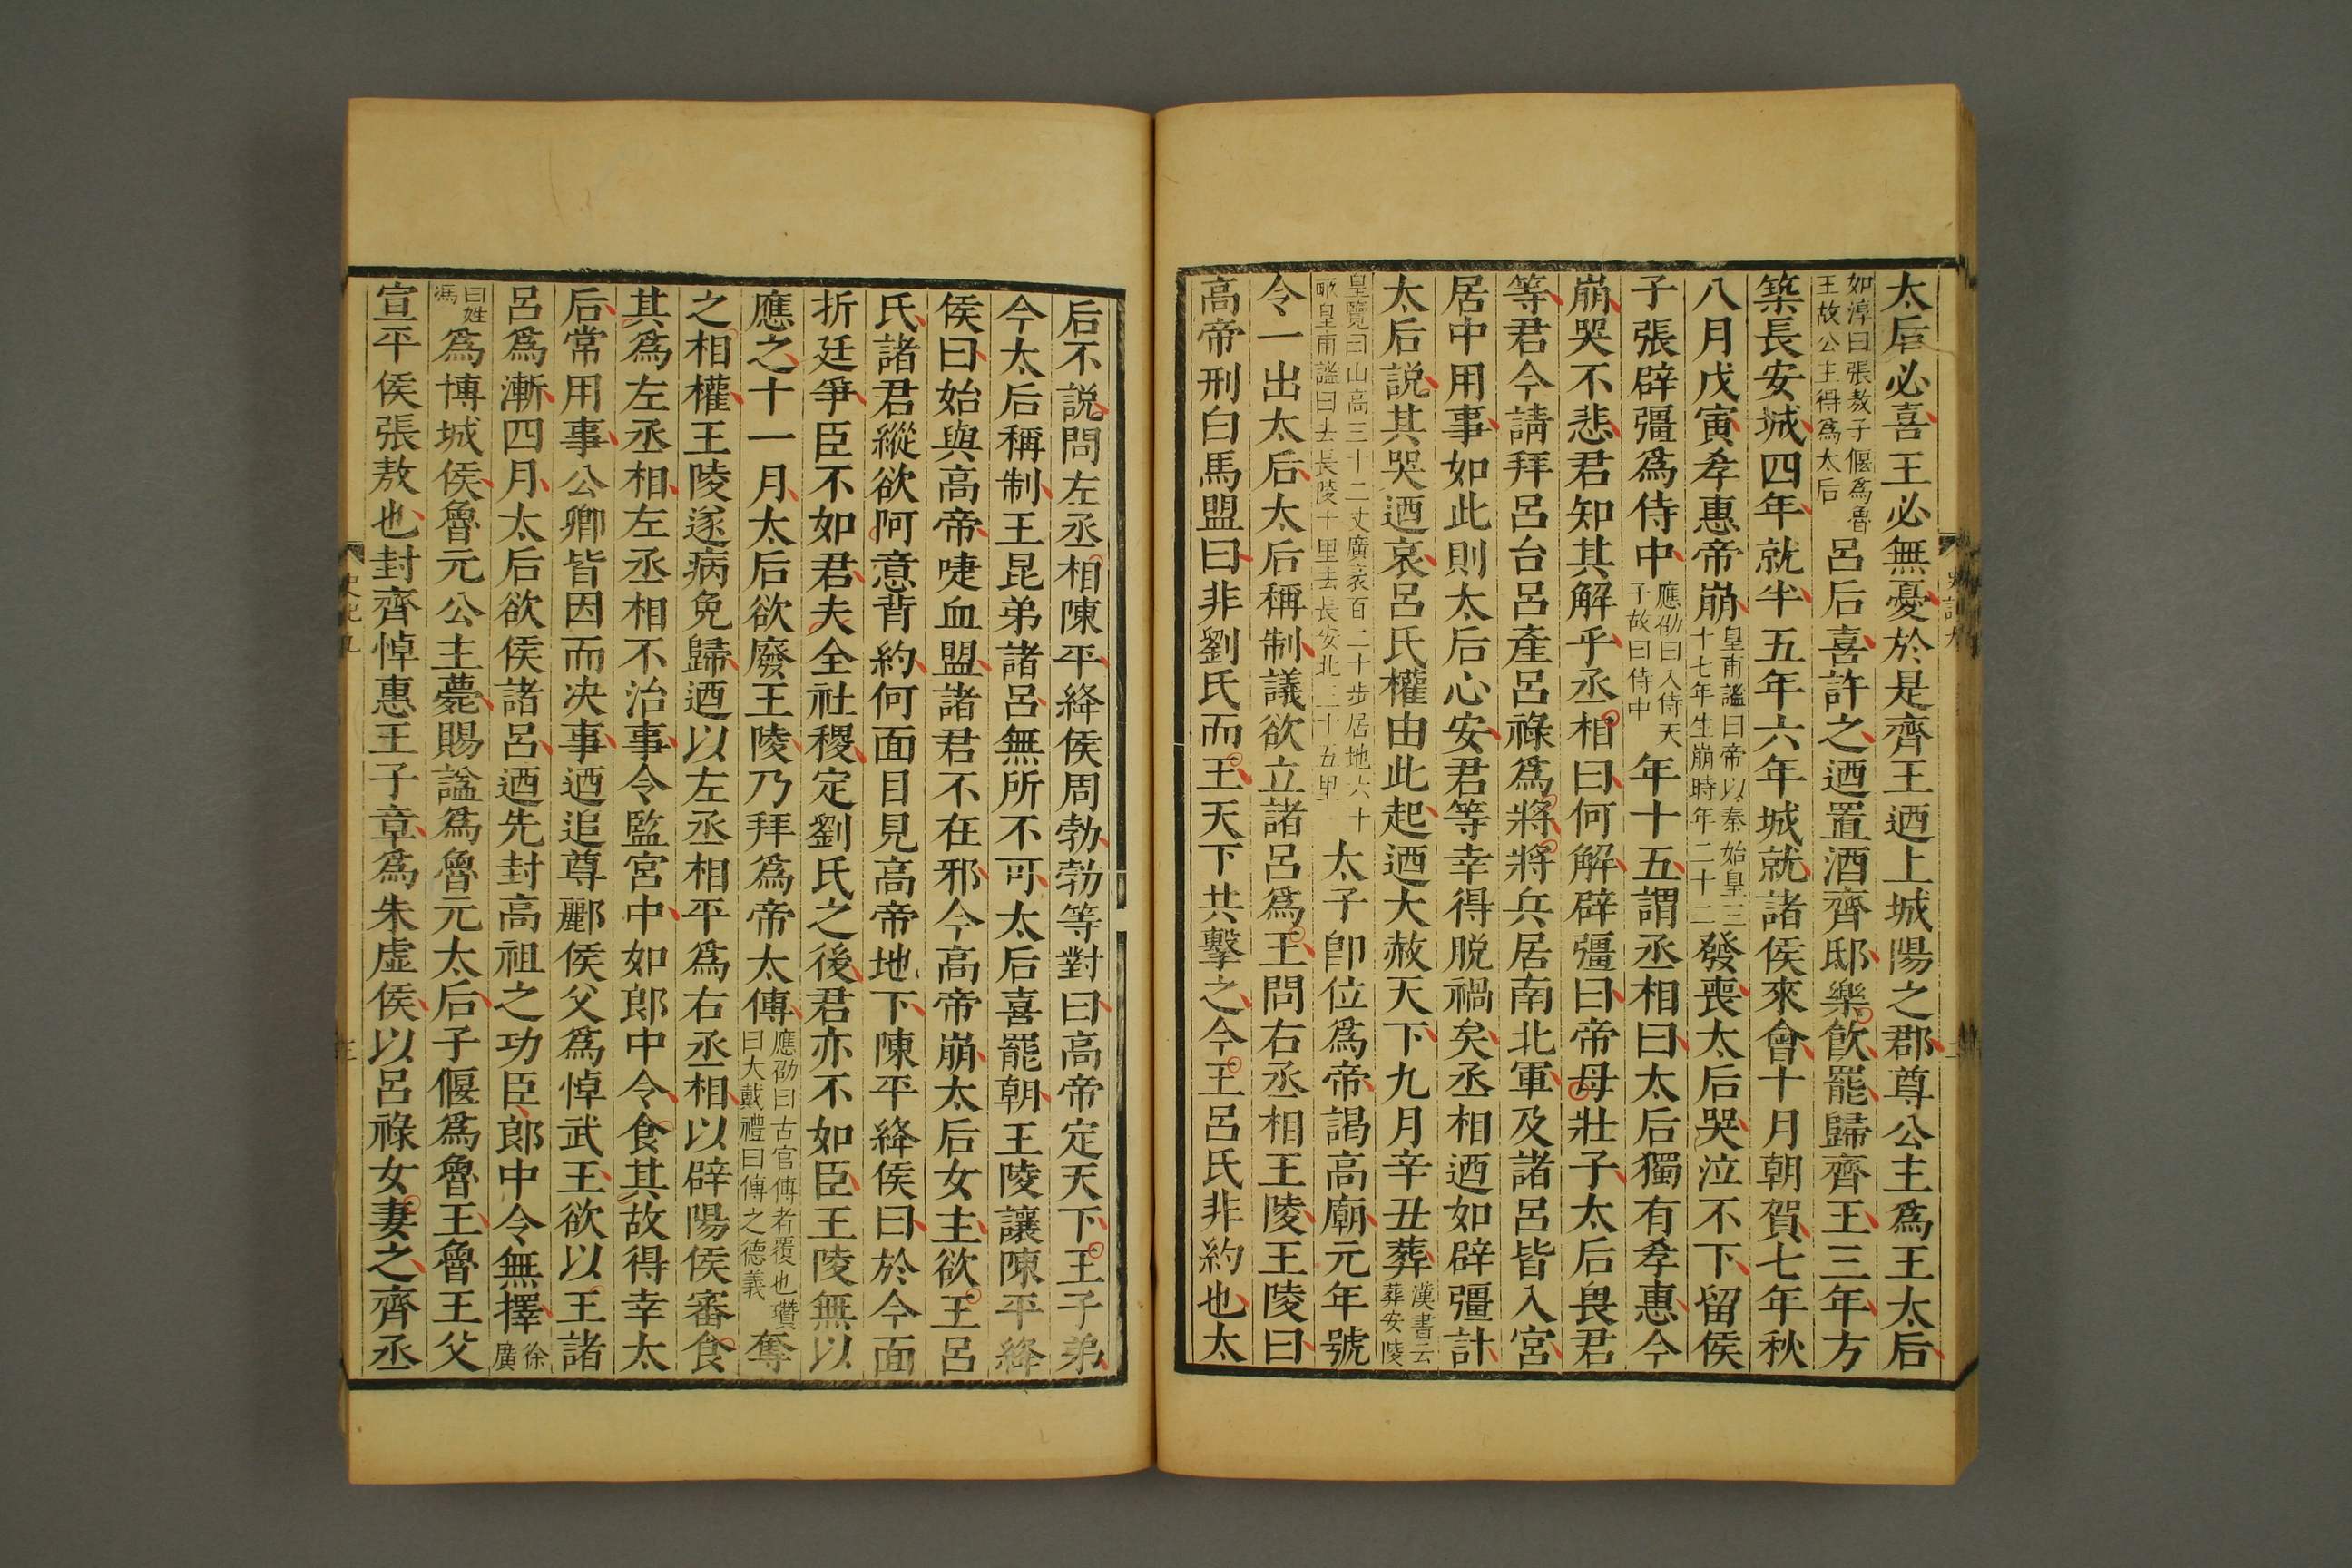 太后必喜王必無憂於是齊王迺上城陽之郡尊公主爲王太后
如淳曰張敖子偃爲魯王故公主得爲太后呂后喜許之迺置酒齊邸樂飲罷歸齊王三年方
築長安城四年就半五年六年城就諸侯來會十月朝賀七年秋
八月戊寅孝惠帝崩皇甫謐曰帝以秦始皇三十七年生崩時年二十二發喪太后哭泣不下留侯
子張辟彊爲侍中應劭曰入侍天子故曰侍中年十五謂丞相曰太后獨有孝惠今
崩哭不悲君知其解乎丞相曰何解辟彊曰帝母壯子太后畏君
等君今請拜呂台呂產呂祿爲將將兵居南北軍及諸呂皆入宮
居中用事如此則太后心安君等幸得脫禍矣丞相迺如辟彊計
太后說其哭迺哀呂氏權由此起迺大赦天下九月辛丑葬漢書云葬安陵
皇覽曰山高三十二丈廣袤百二十步居地六十畝皇甫謐曰去長陵十里去長安北三十五里太子卽位爲帝謁高廟元年號
令一出太后太后稱制議欲立諸呂爲王問右丞相王陵王陵曰
高帝刑白馬盟曰非劉氏而王天下共擊之今王呂氏非約也太
史記九
后不說問左丞相陳平絳侯周勃勃等對曰高帝定天下王子弟
今太后稱制王昆弟諸呂無所不可太后喜罷朝王陵讓陳平絳
侯曰始與高帝啑血盟諸君不在邪今高帝崩太后女主欲王呂
氏諸君縱欲阿意背約何面目見高帝地下陳平絳侯曰於今面
折廷爭臣不如君夫全社稷定劉氏之後君亦不如臣王陵無以
應之十一月太后欲廢王陵乃拜爲帝太傅應劭曰古官傅者覆也瓚曰大戴禮曰傅之德義奪
之相權王陵遂病免歸迺以左丞相平爲右丞相以辟陽侯審食
其爲左丞相左丞相不治事令監宮中如郎中令食其故得幸太
后常用事公卿皆因而决事迺追尊酈侯父爲悼武王欲以王諸
呂爲漸四月太后欲侯諸呂迺先封高祖之功臣郎中令無擇徐廣
曰姓馮爲博城侯魯元公主薨賜謚爲魯元太后子偃爲魯王魯王父
宣平侯張敖也封齊悼惠王子章爲朱虛侯以呂祿女妻之齊丞
史記九
三